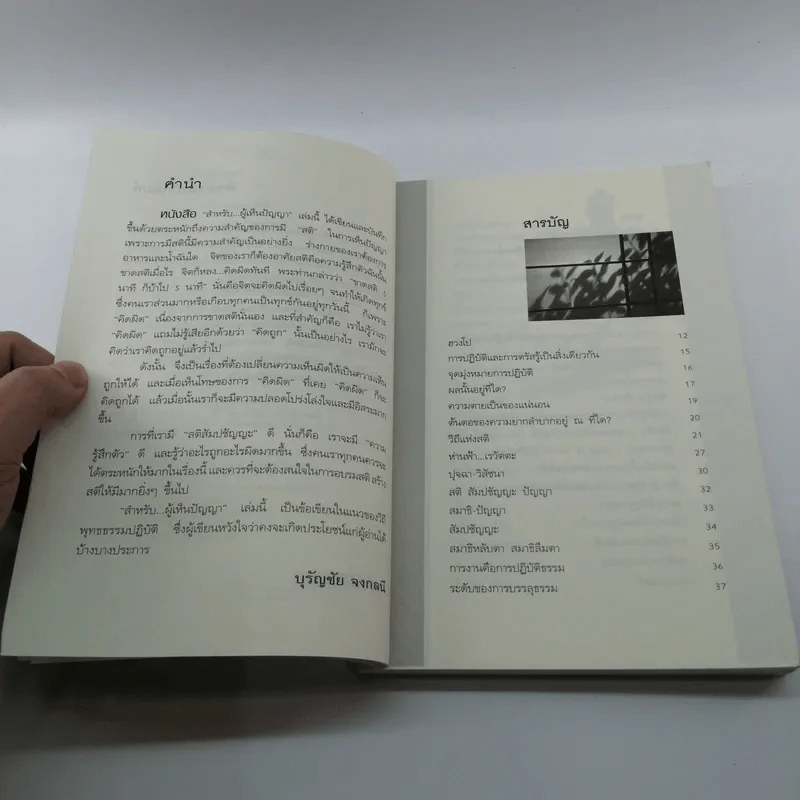 คำนำ
หนังสือ "สำหรับ...ผู้เห็นปัญญา" เล่มนี้ ได้เขียนและบันทึก
ขึ้นด้วยตระหนักถึงความสำคัญของการมี "สติ" ในการเห็นปัญญา
เพราะการมีสตินี้มีความสำคัญเป็นอย่างยิ่ง ร่างกายของเราต้องการ
อาหารและน้ำฉันใด จิตของเราก็ต้องอาศัยสติคือความรู้สึกตัวฉันนั้น
ขาดสติเมื่อไร จิตก็หลง...คิดผิดทันที พระท่านกล่าวว่า "ขาดสติ 5
นาที ก็บ้าไป 5 นาที" นั่นคือจิตจะคิดผิดไปเรื่อยๆ จนทำให้เกิดทุกข์
ซึ่งคนเราส่วนมากหรือเกือบทุกคนเป็นทุกข์กันอยู่ทุกวันนี้ ก็เพราะ
"คิดผิด" เนื่องจากการขาดสตินั่นเอง และที่สำคัญก็คือ เราไม่รู้ว่าเรา
"คิดผิด" แถมไม่รู้เสียอีกด้วยว่า "คิดถูก" นั้นเป็นอย่างไร เรามักจะ
คิดว่าเราคิดถูกอยู่แล้วร่ำไป
ดังนั้น จึงเป็นเรื่องที่ต้องเปลี่ยนความเห็นผิดให้เป็นความเห็น
ถูกให้ได้ และเมื่อเห็นโทษของการ "คิดผิด" ที่เคย "คิดผิด" ก็จะ
คิดถูกได้ แล้วเมื่อนั้นเราก็จะมีความปลอดโปร่งโล่งใจและมีอิสระมาก
ขึ้น
การที่เรามี "สติสัมปชัญญะ" ดี นั่นก็คือ เราจะมี "ความ
รู้สึกตัว" ดี และรู้ว่าอะไรถูกอะไรผิดมากขึ้น ซึ่งคนเราทุกคนควรจะ
ได้ตระหนักให้มากในเรื่องนี้ และควรที่จะต้องสนใจในการอบรมสติ สร้าง
สติให้มีมากยิ่งๆ ขึ้นไป
"สำหรับ...ผู้เห็นปัญญา" เล่มนี้ เป็นข้อเขียนในแนวของวิถี
พุทธธรรมปฏิบัติ ซึ่งผู้เขียนหวังใจว่าคงจะเกิดประโยชน์แก่ผู้อ่านได้
บ้างบางประการ
บุรัญชัย จงกลนี
สารบัญ
ฮวงโป 12
การปฏิบัติและการตรัสรู้เป็นสิ่งเดียวกัน 15
จุดมุ่งหมายการปฏิบัติ 16
ผลนั้นอยู่ที่ใด? 17
ความตายเป็นของแน่นอน 19
ต้นตอของความยากลำบากอยู่ ณ ที่ใด? 20
วิถีแห่งสติ 21
ห่านฟ้า...เรวัตตะ 27
ปุจฉา-วิสัชนา 30
สติ สัมปชัญญะ ปัญญา 32
สมาธิ-ปัญญา 33
สัมปชัญญะ 34
สมาธิหลับตา สมาธิลืมตา 35
การงานคือการปฏิบัติธรรม 36
ระดับของการบรรลุธรรม 37